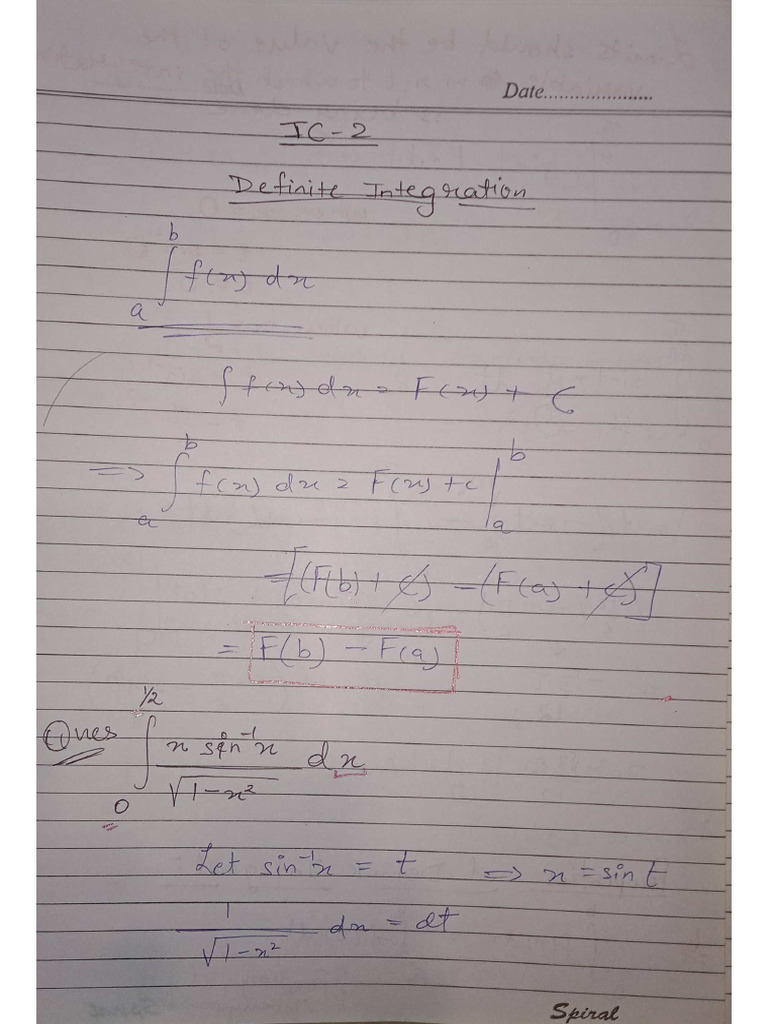 Date.....................
IC-2
Definite Integration
∫_a^b f(x) dx
∫ f(x) dx = F(x) + C
=> ∫_a^b f(x) dx = F(x) + c |_a^b
= [(F(b) + c) - (F(a) + c)]
= F(b) - F(a)
Ques ∫_0^{1/2} x sin⁻¹x / √(1-x²) dx
Let sin⁻¹x = t => x = sin t
1/√(1-x²) dx = dt
Spiral